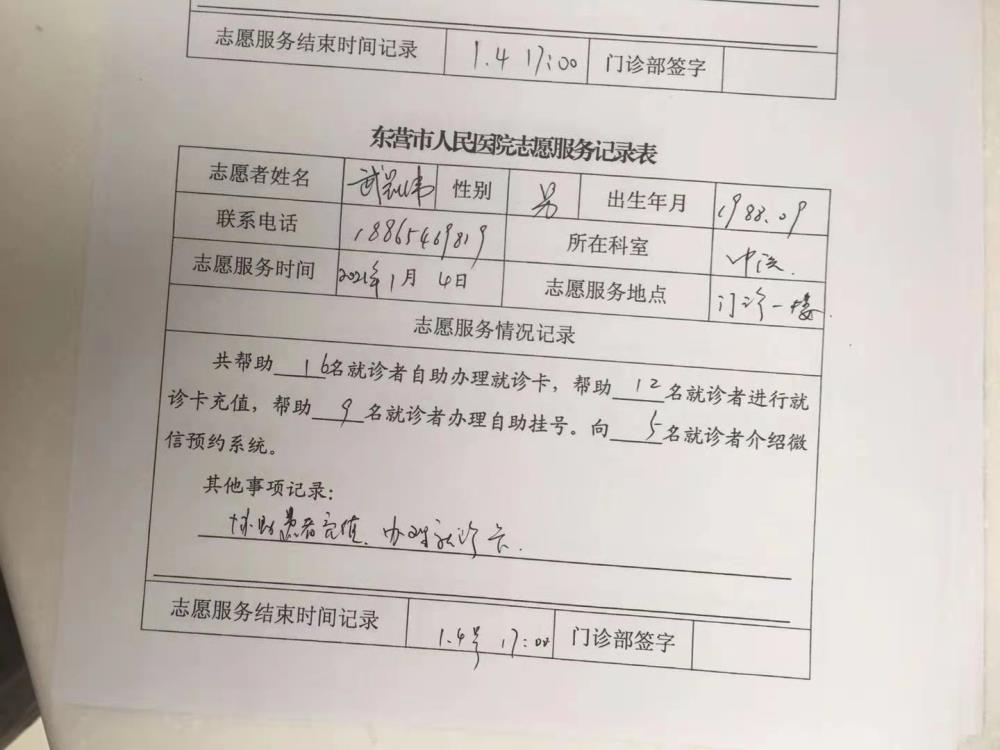 志愿服务结束时间记录 1.4 17:00 门诊部签字
东营市人民医院志愿服务记录表
志愿者姓名 武 性别 男 出生年月 1988.09
联系电话 18865469819 所在科室
志愿服务时间 2021年1月4日 志愿服务地点 门诊一楼
志愿服务情况记录
共帮助16名就诊者自助办理就诊卡，帮助12名就诊者进行就
诊卡充值，帮助9名就诊者办理自助挂号。向5名就诊者介绍微
信预约系统。
其他事项记录：
协助患者充值、办理就诊卡.
志愿服务结束时间记录 1.4号 17:00 门诊部签字